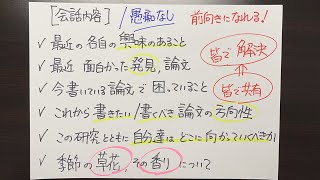 [会話内容] /愚痴なし 前向きになれる!
✓ 最近の各自の興味のあること
✓ 最近 面白かった発見,論文
✓ 今書いている論文で困っていること
✓ これから書きたい/書くべき論文の方向性
✓ この研究とともに自分達はどこに向かっていくべきか
✓ 季節の草花,その香りについて
皆で解決
⇑
皆で共有